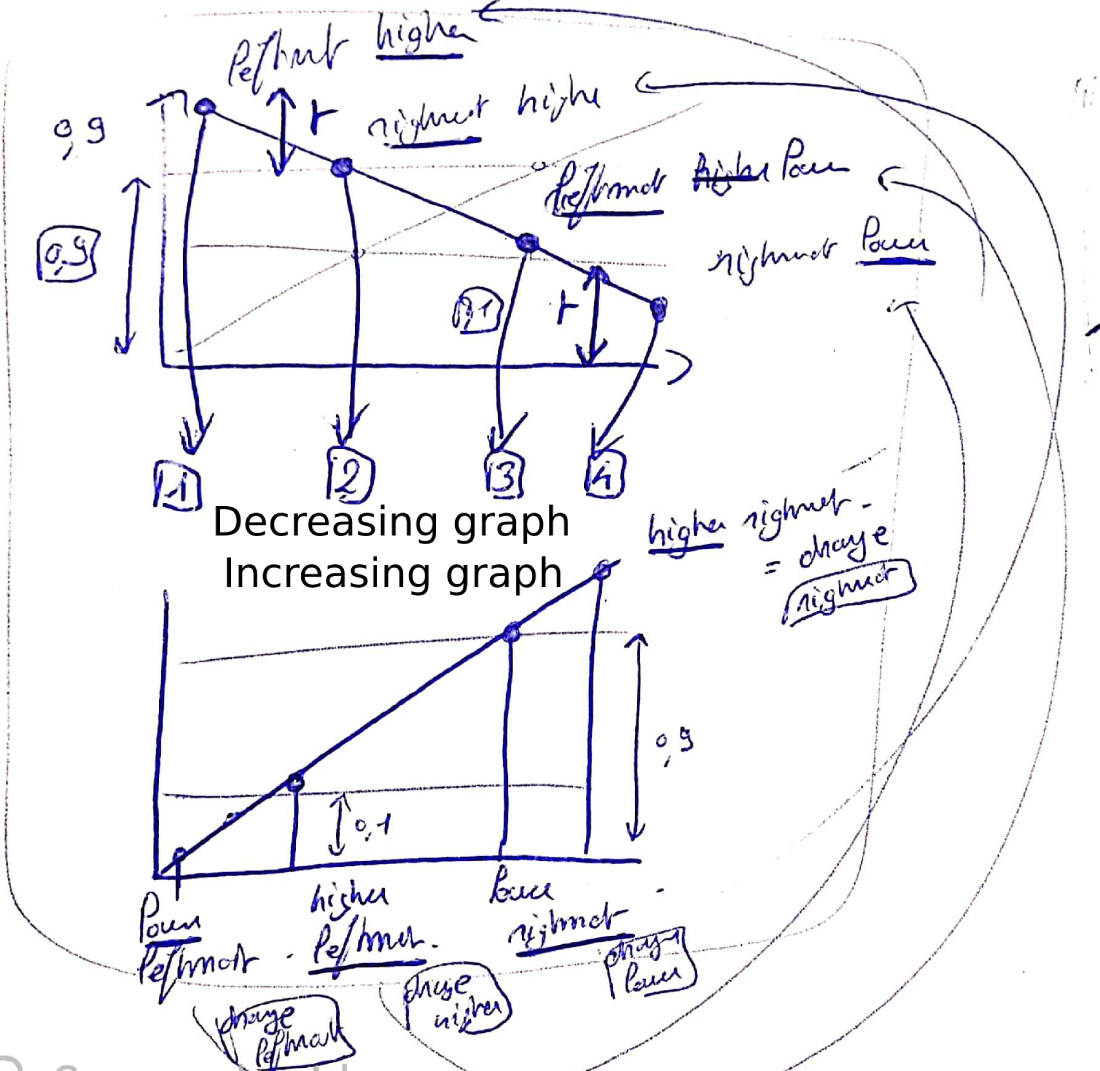 leftmost higher
rightmost higher
0,9
leftmost higher lower
0,9
rightmost lower
r
0,1
r
1 2 3 4
Decreasing graph
Increasing graph
higher rightmost -
= change
rightmost
0,9
0,1
lower
leftmost -
higher
leftmost.
lower
rightmost
change
leftmost
change
higher
change
lower